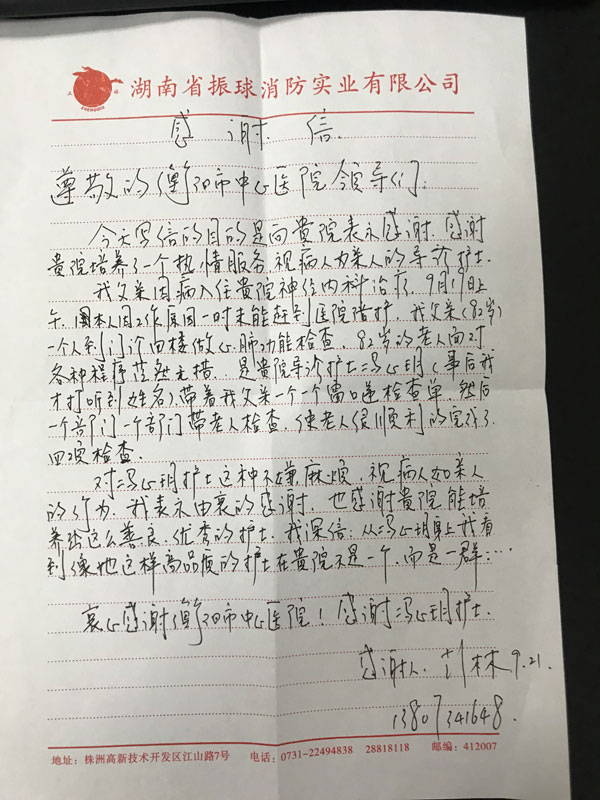 湖南省振球消防实业有限公司
ZHENQIU
感谢信
尊敬的衡阳市中心医院领导们:
今天写信的目的是向贵院表示感谢.感谢
贵院培养了一个热情服务,视病人为亲人的导诊护士.
我父亲因病入住贵院神经内科治疗,9月19日上
午,因本人因工作原因一时未能赶到医院陪护,我父亲(82岁)
一个人到门诊四楼做心肺功能检查,82岁的老人面对
各种程序茫然无措,是贵院导诊护士冯心玥(事后我
才打听到姓名)带着我父亲一个一个窗口递检查单,然后
一个部门一个部门带老人检查,使老人很顺利的完成了
四项检查.
对冯心玥护士这种不嫌麻烦,视病人如亲人
的行为,我表示由衷的感谢,也感谢贵院能培
养出这么善良.优秀的护士,我深信:从冯心玥身上我看
到像她这样高品质的护士在贵院不是一个,而是一群…
衷心感谢衡阳市中心医院!感谢冯心玥护士.
感谢人: 林 9.21.
13807341648.
地址:株洲高新技术开发区江山路7号 电话:0731-22494838 28818118 邮编:412007